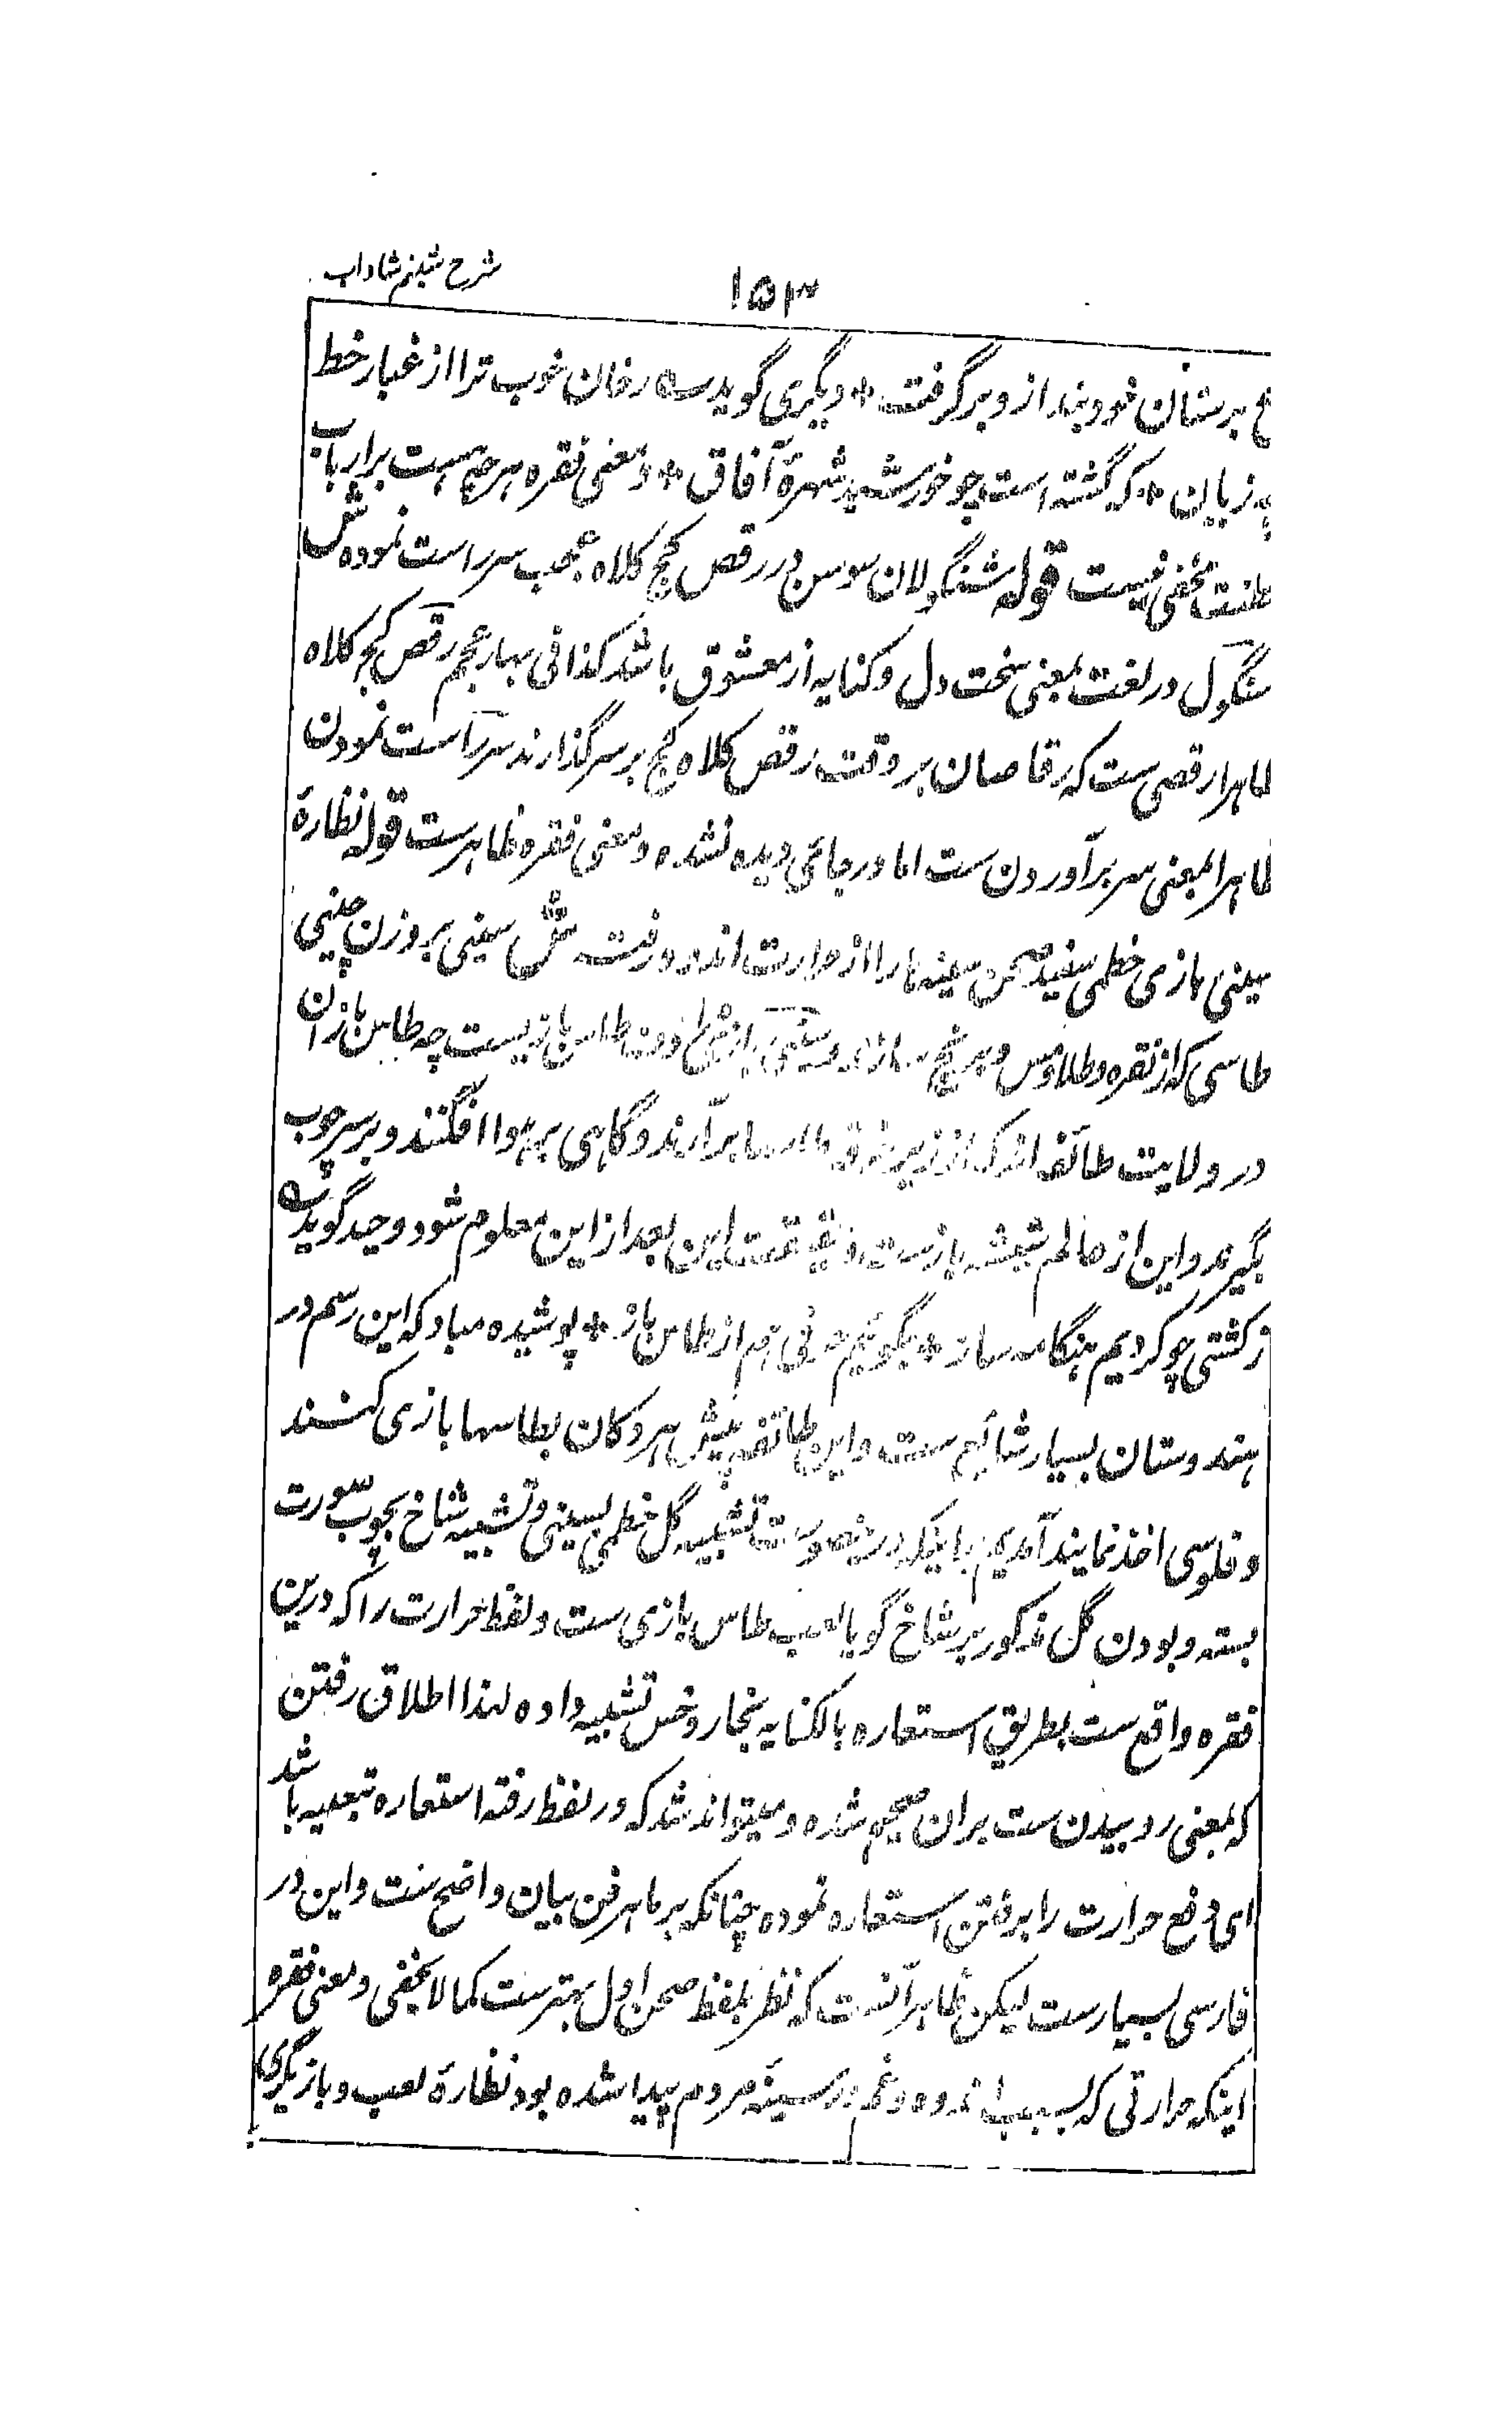 شرح شبنم شاداب
۱۵۳
برستان خود بند از و برگرفت * دیگری گوید سه رخان خوب ترا از غبار خط
چه زیان * که گشته است چو خورشید شهرهٔ آفاق * و معنی فقره هر چه هست بر ارباب
مخفی نیست قوله شنگولان سوسن در رقص کج کلاه عجب سر راست نموده ش
شنگول در لغت بمعنی سخت دل و کنایه از معشوق باشد کذا فی بهار عجم رقص کج کلاه
ظاهرا رقصی ست که رقاصان بر وقت رقص کلاه کج بر سر گذارند سر راست نمودن
ظاهرا بمعنی سر برآوردن ست اما در جائی دیده نشده و معنی فقره ظاهرست قوله نظارهٔ
سینی بازی خطمی سفید صحن سینها را از حرارت اندوه رفت ش سینی بر وزن چینی
طاسی که از نقره و طلا و مس و برنج سازند و سینی بازی طاس بازیست چه طاس بازان
در ولایت طائفه اند که از زیر خرقه طاسها برآرند و گاهی بر هوا افگنند و بر سر چوب
بگیرند و این از عالم شیشه بازست و حقیقت این بعد از این معلوم شود وحید گوید سه
ز کشتی چو کردیم هنگامه ساز * بگوئیم حرفی هم از طاس باز * پوشیده مباد که این رسم در
هندوستان بسیار شائع ست و این طائفه پیش هر دکان بطاسها بازی کنند
و فلوسی اخذ نمایند آمدیم باینکه درینصورت تشبیه گل خطمی بسینی و تشبیه شاخ بچوب صورت
بسته و بودن گل مذکور بر شاخ گویا لعب طاس بازی ست و لفظ حرارت را که درین
فقره واقع ست بطریق استعاره بالکنایه بخار و خس تشبیه داده لهذا اطلاق رفتن
که بمعنی روبیدن ست بران صحیح شده و میتواند شد که در لفظ رفته استعاره تبعیه باشد
ای دفع حرارت را برفتن استعاره نموده چنانکه بر ماهر فن بیان واضح ست و این در
فارسی بسیارست لیکن ظاهر آنست که نظر بلفظ صحن اول بهترست کما لا یخفی و معنی فقره
اینکه حرارتی که بسبب اندوه و غم در سینهٔ مردم پیدا شده بود نظارهٔ لعب و بازیگری